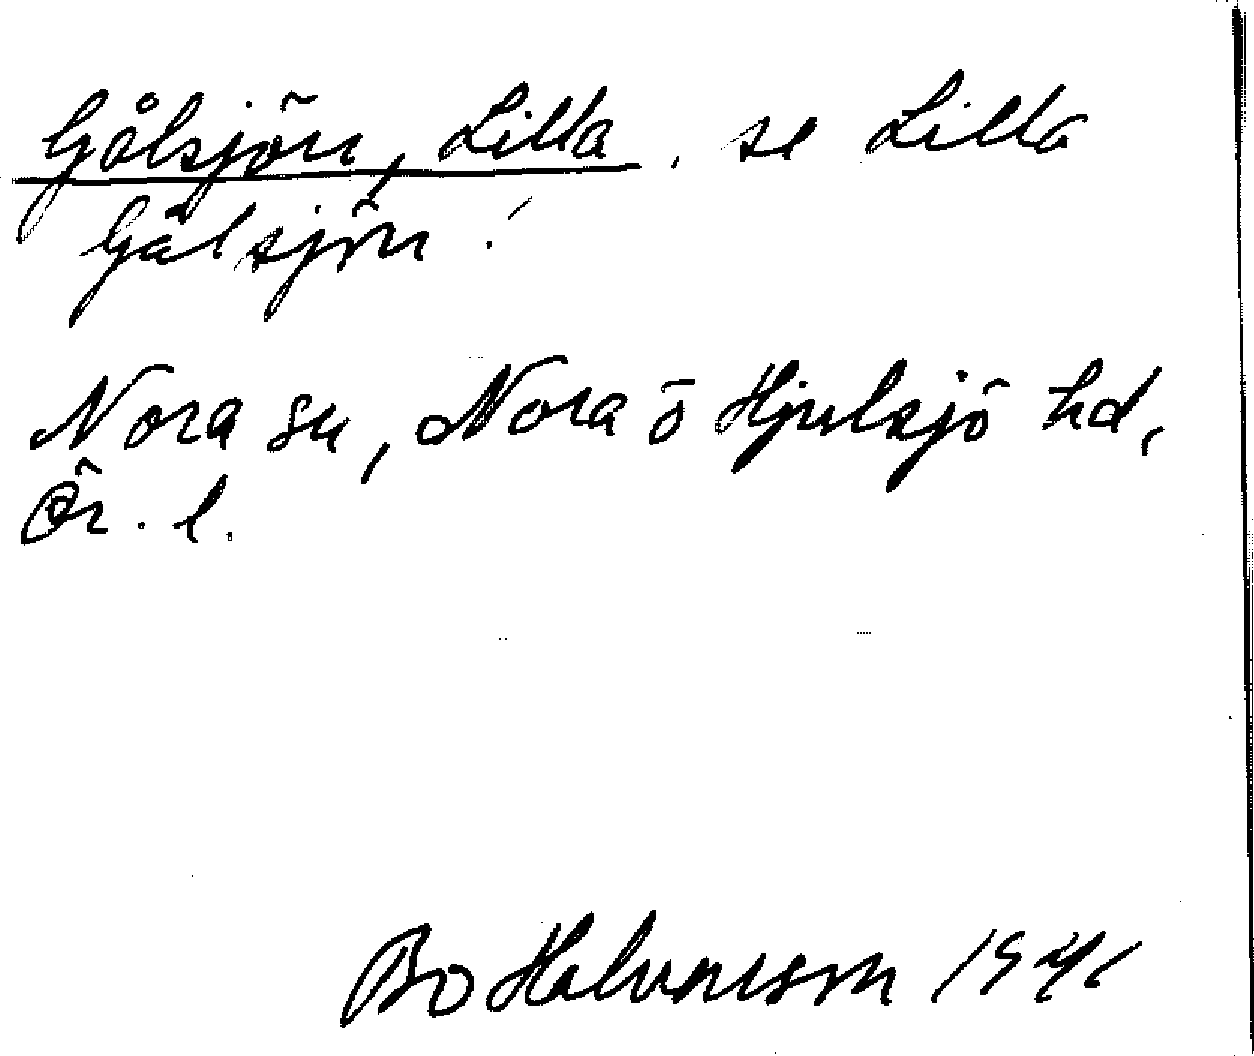 Gålsjön, Lilla, se Lilla
Gålsjön!
Nora sn, Nora ö Hjulsjö hd,
Ör. l.
Bo Halvarsson 1941